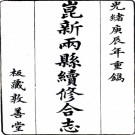 光緒庚辰年重鐫
崑新兩縣續修合志
板藏敦善堂